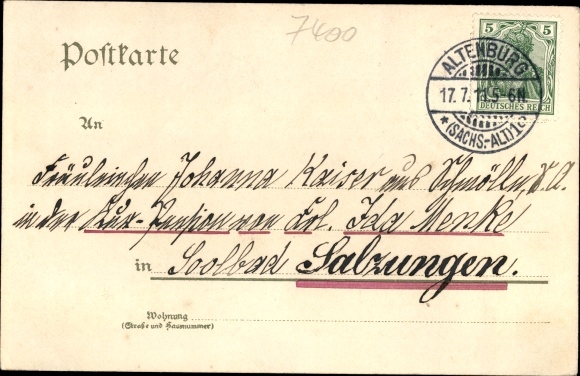 7400
Postkarte
5 5
DEUTSCHES REICH
ALTENBURG
17.7.11.5-6N.
*(SACHS.-ALT)1c
An
Fräuleinchen Johanna Kaiser aus Schmölln, S.A.
in der Kur-Pension von Frl. Ida Menke
in Soolbad Salzungen.
Wohnung
(Straße und Hausnummer)